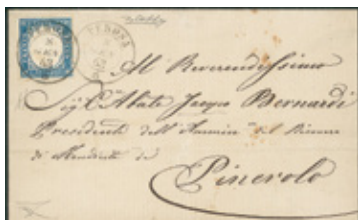 VERONA
Al Reverendissimo
Sig.r Abate Jacopo Bernardi
Presidente dell'Ammin.ne del Ricovero
di Mendicità di
Pinerolo